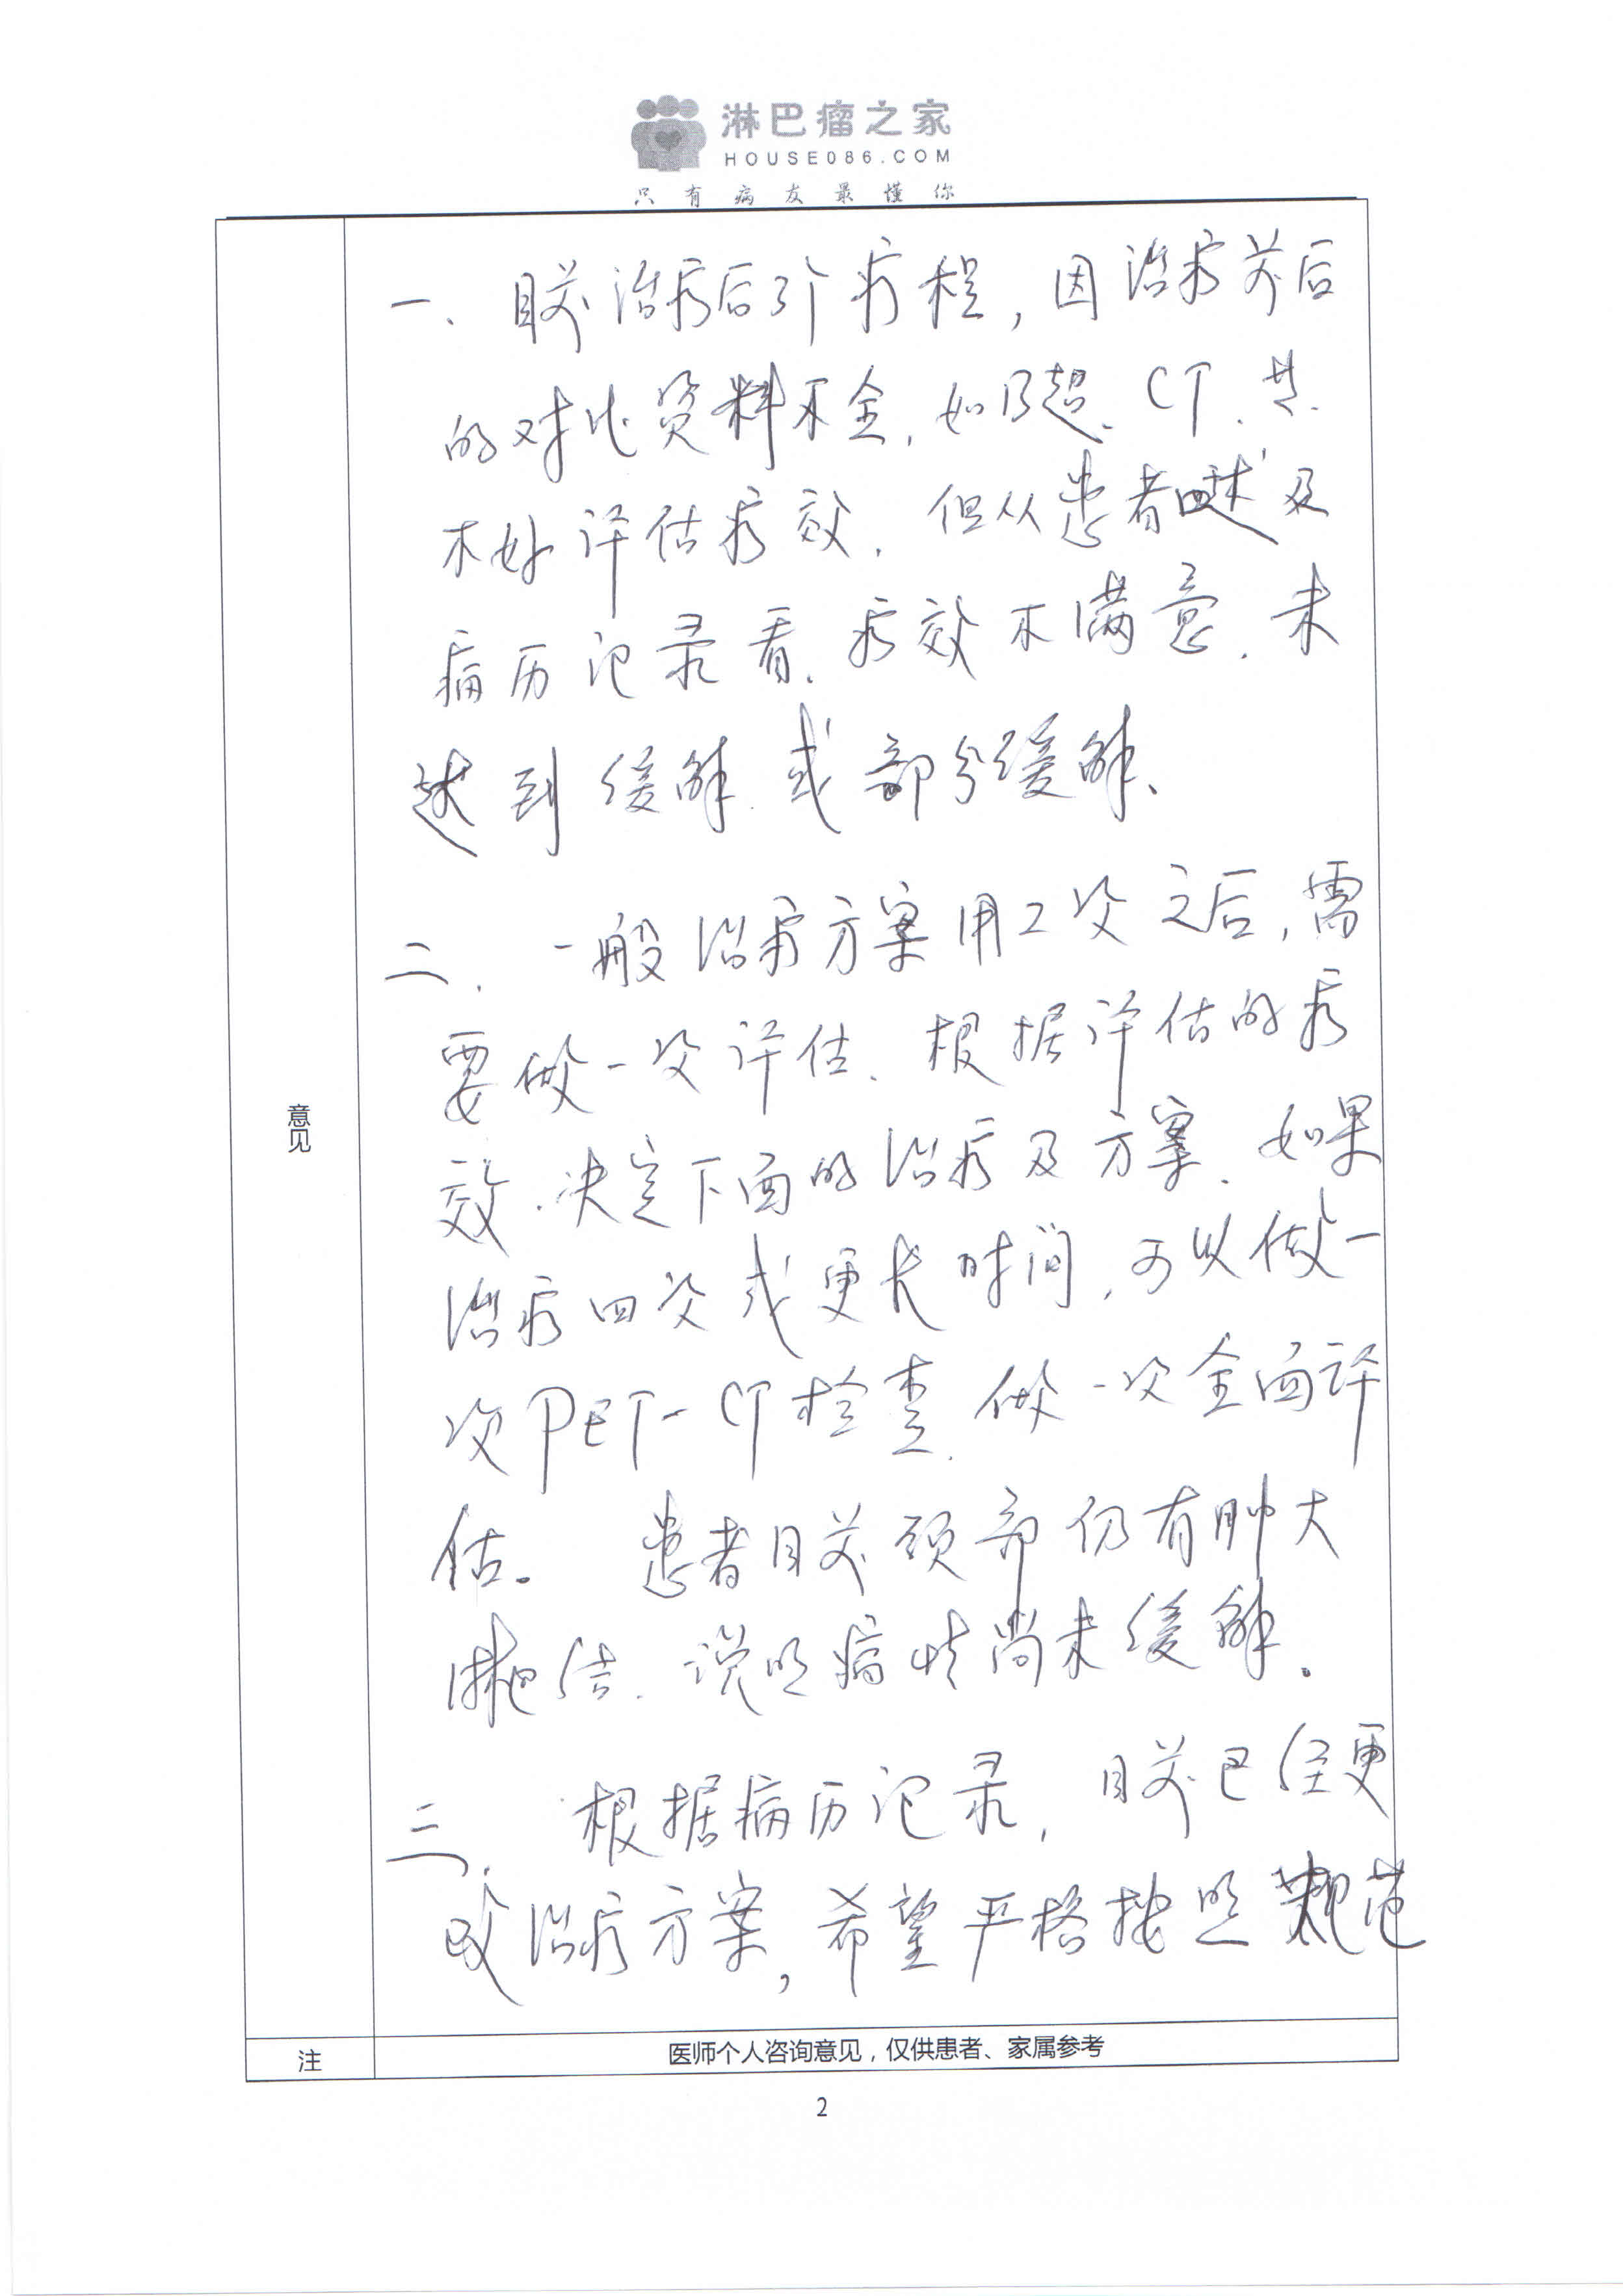 淋巴瘤之家
HOUSE086.COM
只有病友最懂你
一、目前治疗后3个疗程，因治疗前后
的对比资料不全，如B超、CT、共
不好评估疗效，但从患者 及
病历记录看，疗效不满意，未
达到缓解或部分缓解、
二、一般治疗方案用2次之后，需
要做一次评估、根据评估的疗
效、决定下面的治疗及方案、如果
治疗四次或更长时间，可以做一
次PET-CT检查、做一次全面评
估。 患者目前颈部仍有肿大
淋巴结、说明病情尚未缓解。
三、根据病历记录，目前已经更
改治疗方案，希望严格按照规范
意见
注
医师个人咨询意见，仅供患者、家属参考
2